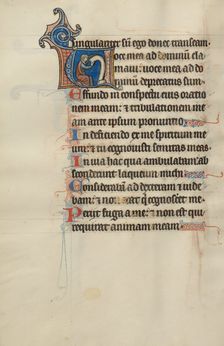 singulariter sū ego donec transeam.
Voce mea ad dominū cla
maui: uoce mea ad do
minū deprecatus sum
Effundo in conspectu eius oratio
nem meam: & tribulationem me
am ante ipsum pronuntio
In deficiendo ex me spiritum
meum: & tu cognouisti semitas meas
In uia hac qua ambulabam: ab
sconderunt laqueum michi
Considerabā ad dexteram & uide
bam: & non erat qui cognosceret me
Periit fuga a me: & non est qui
requirat animam meam